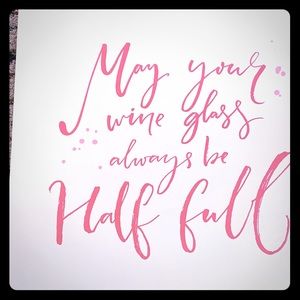 May your
wine glass
always be
Half full